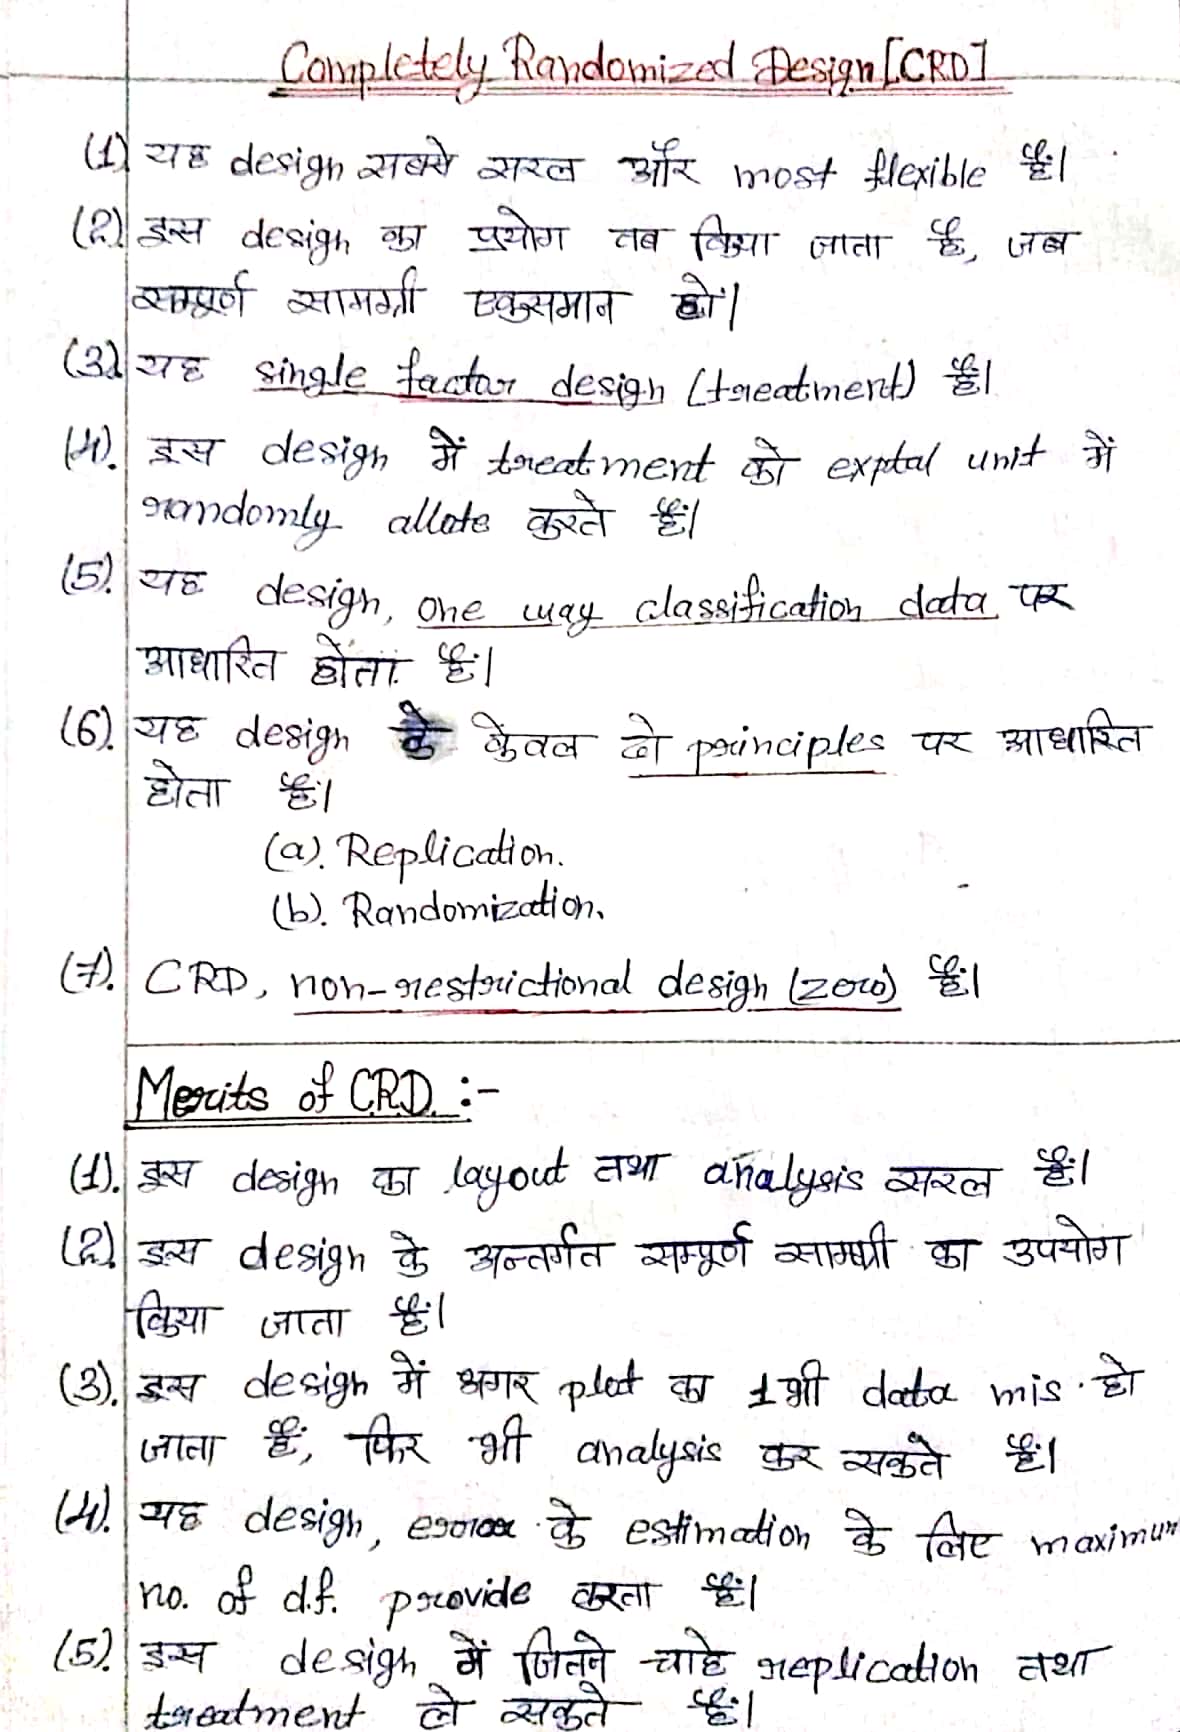 Completely Randomized Design [CRD]
(1) यह design सबसे सरल और most flexible हैं।
(2) इस design का प्रयोग तब किया जाता है, जब
सम्पूर्ण सामग्री एकसमान हों।
(3) यह single factor design (treatment) हैं।
(4). इस design में treatment को exptal unit में
randomly allote करते हैं।
(5). यह design, one way classification data पर
आधारित होता हैं।
(6). यह design के केवल दो principles पर आधारित
होता हैं।
(a). Replication.
(b). Randomization.
(7). CRD, non-restrictional design (zero) हैं।
Merits of C.R.D. :-
(1). इस design का layout तथा analysis सरल हैं।
(2). इस design के अन्तर्गत सम्पूर्ण सामग्री का उपयोग
किया जाता हैं।
(3). इस design में अगर plot का 1 भी data mis. हो
जाता हैं, फिर भी analysis कर सकते हैं।
(4). यह design, error के estimation के लिए maximum
no. of d.f. provide करता हैं।
(5). इस design में जितने चाहे replication तथा
treatment ले सकते हैं।